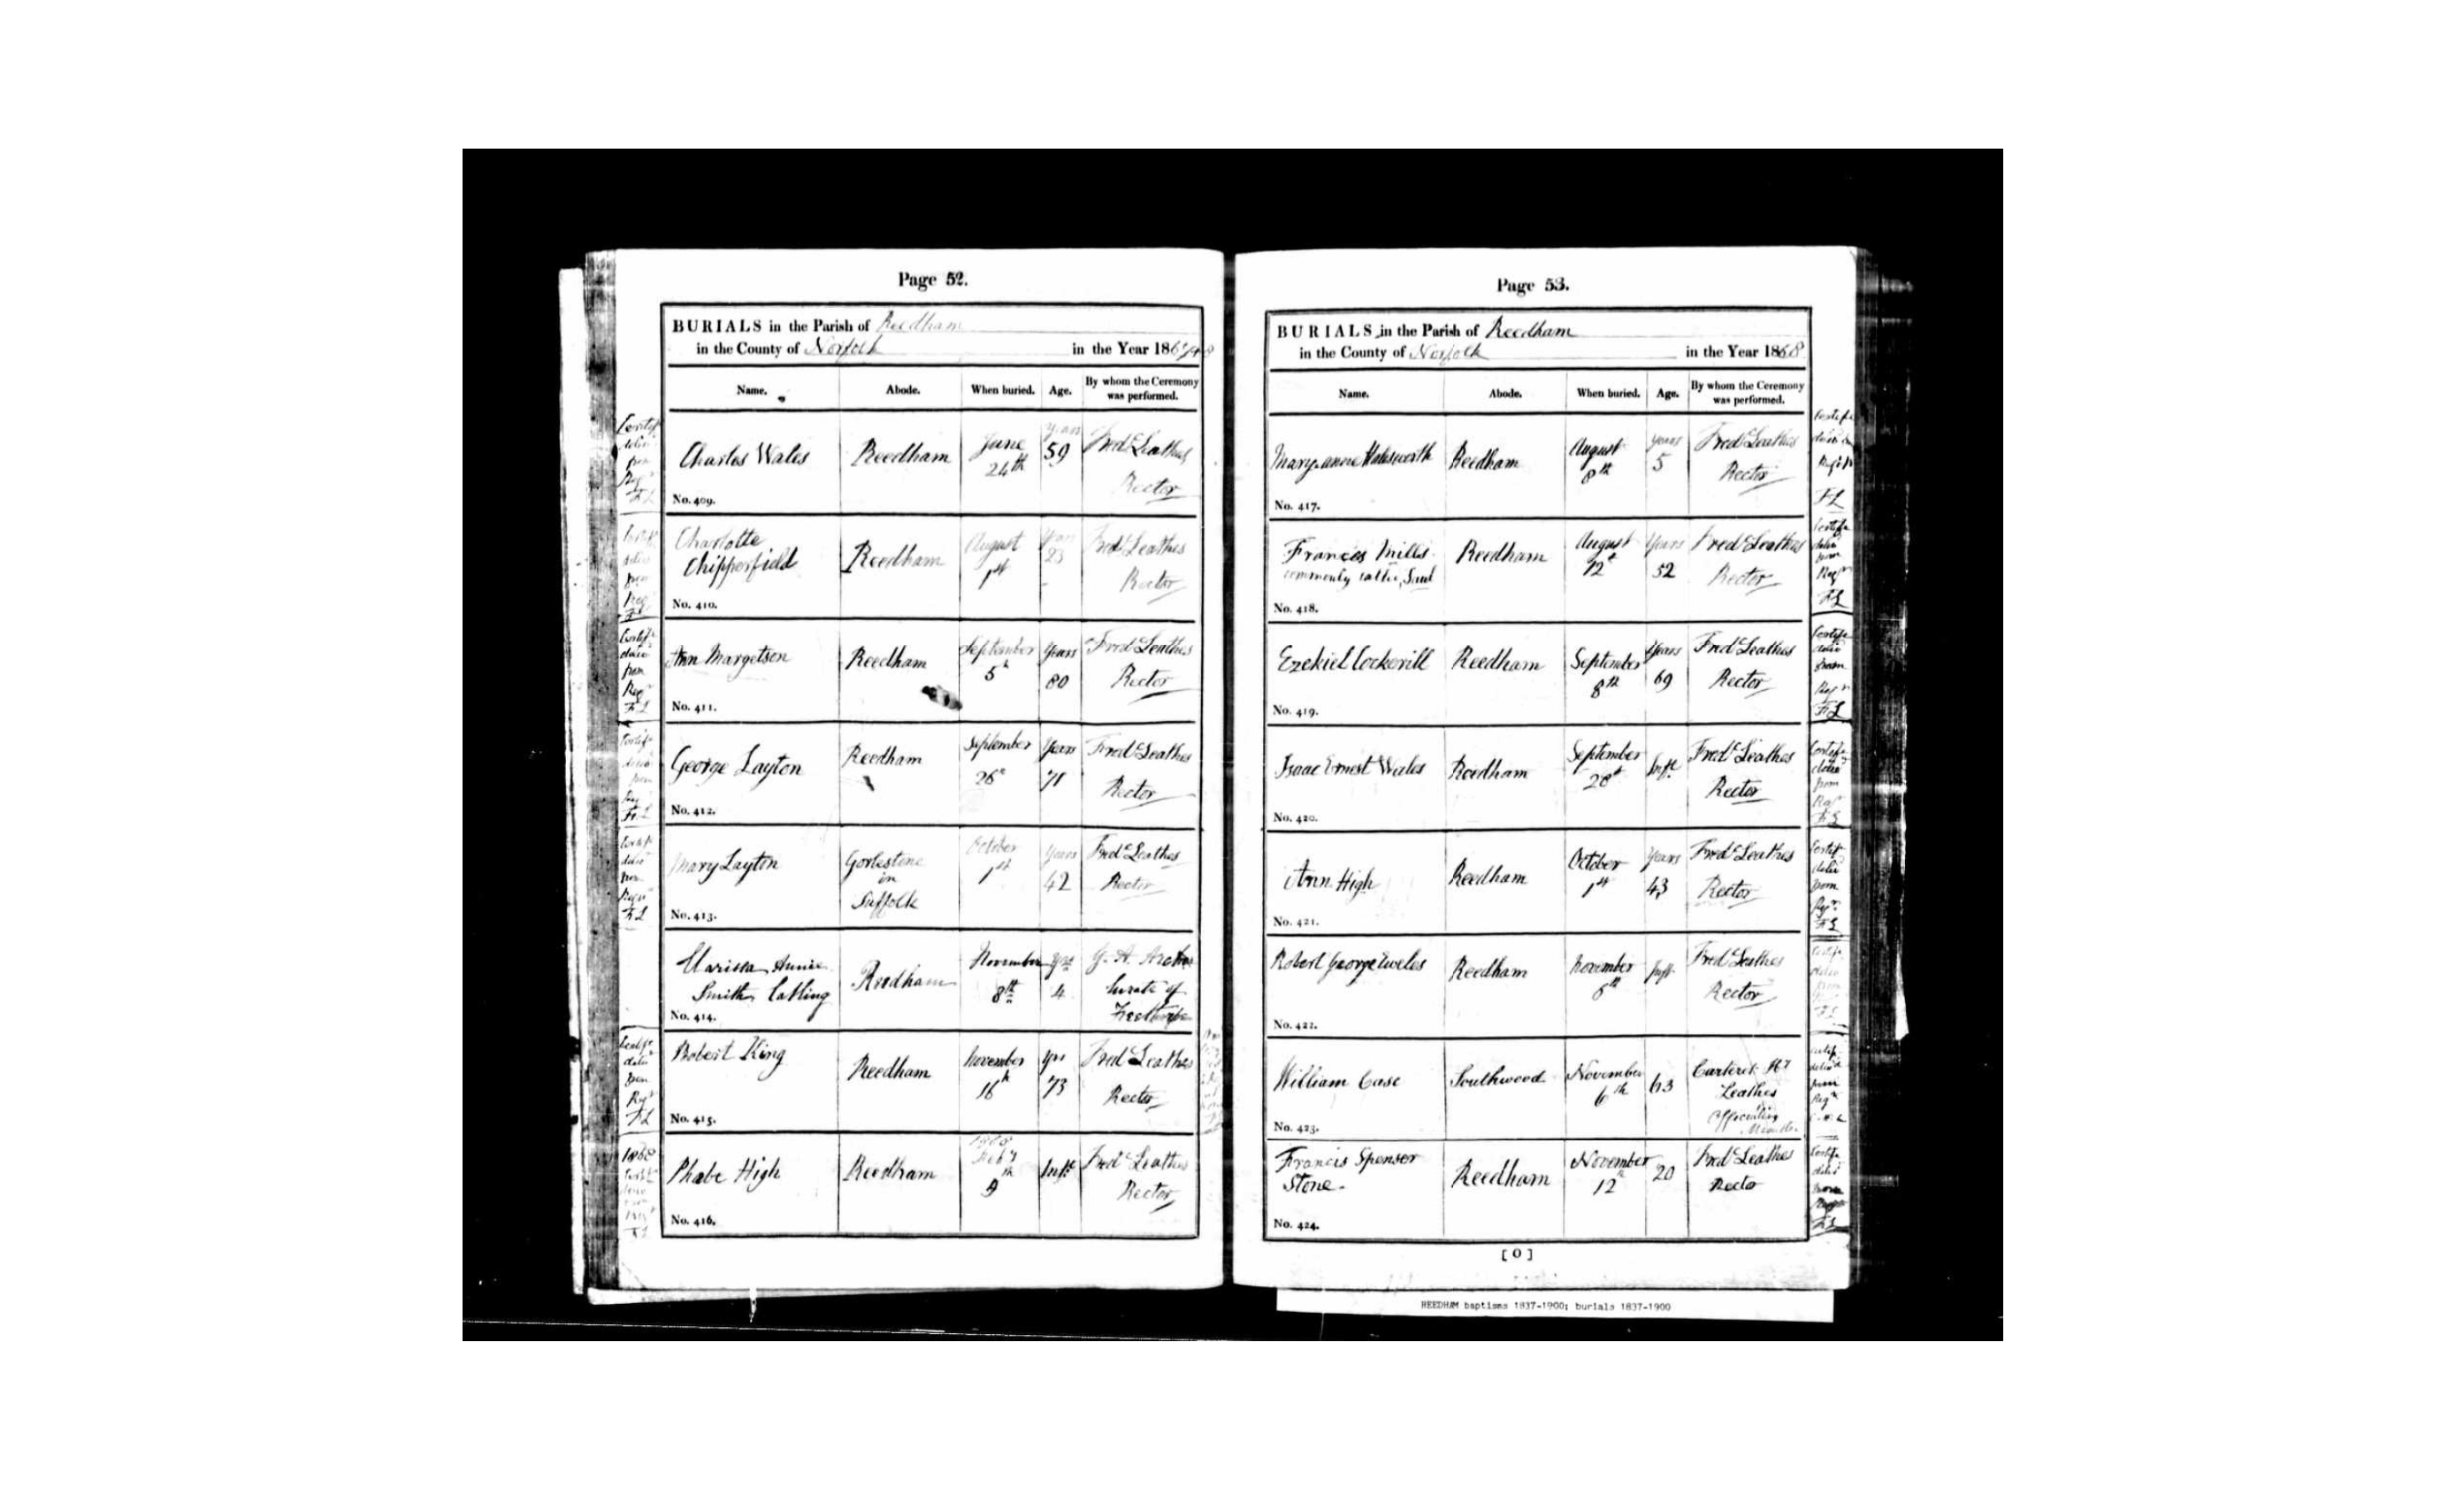 Page 52.
BURIALS in the Parish of Reedham
in the County of Norfolk in the Year 186
Name. Abode. When buried. Age. By whom the Ceremony was performed.
Charles Wales Reedham June 24th Years 59 Fredc Leathes Rector
No. 409.
Charlotte Chipperfield Reedham August 1st Years 23 Fredc Leathes Rector
No. 410.
Ann Margetson Reedham September 5th Years 80 Fredc Leathes Rector
No. 411.
George Layton Reedham September 26th Years 71 Fredc Leathes Rector
No. 412.
Mary Layton Gorlestone in Suffolk October 1st Years 42 Fredc Leathes Rector
No. 413.
Clarissa Annie Smith Catling Reedham November 8th Yrs 4 Curate of Freethorpe
No. 414.
Robert King Reedham November 16th Yrs 73 Fredc Leathes Rector
No. 415.
Phabe High Reedham 1868 Feby 9th Inft Fredc Leathes Rector
No. 416.
Page 53.
BURIALS in the Parish of Reedham
in the County of Norfolk in the Year 1868
Name. Abode. When buried. Age. By whom the Ceremony was performed.
Mary anne Halesworth Reedham August 8th Years 5 Fredc Leathes Rector
No. 417.
Francis Mills commonly called Saul Reedham August 12th Years 52 Fredc Leathes Rector
No. 418.
Ezekiel Cockerill Reedham September 8th Years 69 Fredc Leathes Rector
No. 419.
Isaac Ernest Wales Reedham September 28th Inft Fredc Leathes Rector
No. 420.
Ann High Reedham October 1st Years 43 Fredc Leathes Rector
No. 421.
Robert George Eweles Reedham November 6th Inft Fredc Leathes Rector
No. 422.
William Case Southwood November 6th 63 Carteret Hy Leathes Officiating
No. 423.
Francis Spenser Stone Reedham November 12th 20 Fredc Leathes Rector
No. 424.
[ O ]
REEDHAM baptisms 1837-1900; burials 1837-1900